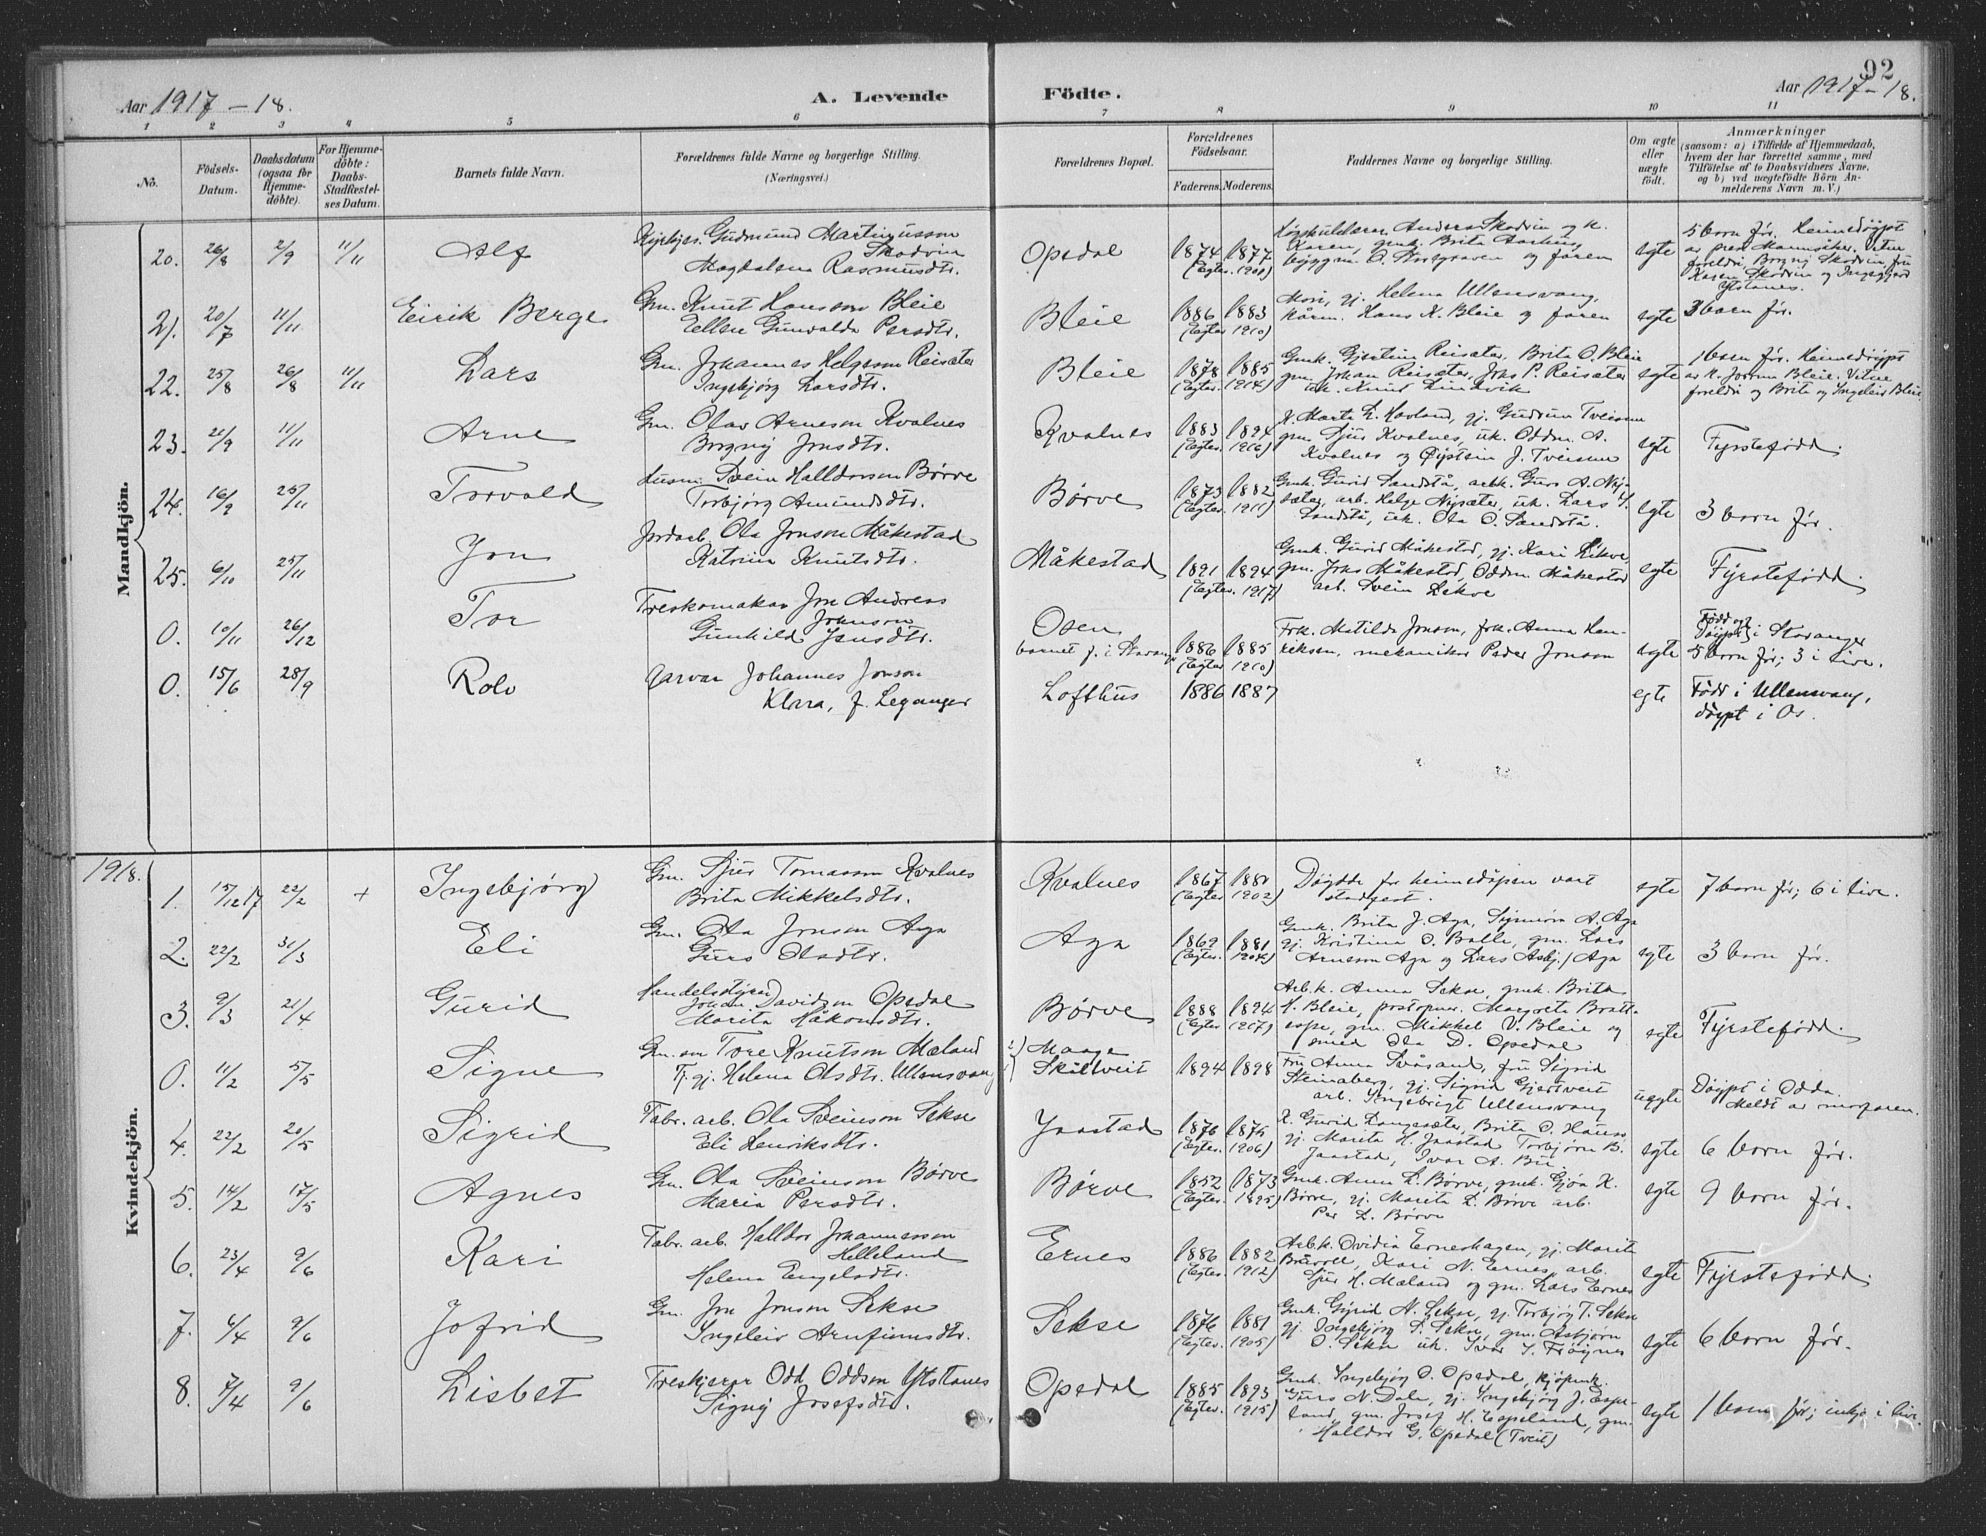 92
Aar 1917–18.
A. Levende Födte.
Aar 1917–18.
1 2 3 4 5 6 7 8 9 10 11
No.
Födsels-Datum.
Daabsdatum (ogsaa før Hjemme-döbte).
For Hjemme-döbte: Daabs-Stadfæstel-ses Datum.
Barnets fulde Navn.
Forældrenes fulde Navne og borgerlige Stilling.
(Næringsvei.)
Forældrenes Bopæl.
Forældrenes Födselsaar.
Faderens. Moderens.
Faddernes Navne og borgerlige Stilling.
Om ægte eller uægte født.
Anmærkninger
(saasom: a) i Tilfælde af Hjemmedaab, hvem der har forrettet samme, med Tilföielse af to Daabsvidners Navne, og b) ved uægtefödte Börn Anmelderens Navn m. V.)
Mandkjön.
20. 26/8 2/9 11/11 Alf
Gudmund Martinusson Skodvin
Magdalena Rasmusdtr.
Opedal 1874 1877
(Egtev. 1900)
Anders Skodvin og k.
Karen, gmk. Brita Aarhus,
byggm. O. Storegraven og faren
egte
5 born før. Heimedøypt
av prest Mannsåker. Vitne
foreldri, Borgny Skodvin, frk
Karen Skodvin og Ingegjerd
Ystanes.
21. 20/7 11/11 Eirik Berge
Gm. Knut Hansson Bleie
Ellen Gunvalda Persdtr.
Bleie 1886 1883
(Egtev. 1910)
Mori, gj. Helena Ullensvang,
kårm. Hans K. Bleie og faren
egte 3 born før.
22. 25/8 26/8 11/11 Lars
Gm. Johannes Helgeson Reisæter
Ingebjørg Larsdtr.
Bleie 1878 1885
(Egtev. 1914)
Gmk. Gjertine Reisæter, Brita O. Bleie
gm. Johan Reisæter, Johs P. Reisæter
uk. Knud Lindvik
egte
1 born før. Heimedøypt
av k. Jorunn Bleie. Vitne
foreldri og Brita og Ingeleiv Bleie
23. 21/9 11/11 Arne
Gm. Olav Arneson Kvalnes
Borgny Jonsdtr.
Kvalnes 1883 1894
(Egtev. 1916)
K. Marta L. Hovland, gj. Gudrun Tveisme
gm. Sjur Kvalnes, uk. Oddm. A.
Kvalnes og Øystein J. Tveisme
egte Fyrstefødd.
24. 16/9 25/11 Torvald
Husm. Svein Halldorson Børve
Torbjørg Amundsdtr.
Børve 1873 1882
(Egtev. 1911)
Gmk. Gurid Sandstå, arbk. Guro A. Nysæter, arb. Helge Nysæter, uk. Lars S.
Sandstå, uk. Ola O. Sandstå.
egte 3 born før.
25. 6/10 25/11 Jon
Jordarb. Ola Jonson Måkestad
Katrina Knutsdtr.
Måkestad 1891 1894
(Egtev. 1917)
Gmk. Gurid Måkestad, gj. Kari Lekve,
gm. Johs Måkestad, Oddm. Måkestad
arb. Svein Lekve
egte Fyrstefødd.
0. 10/11 26/12 Tor
Treskomakar Jon Andreas
Johnson
Gunhild Jensdtr.
Osen
barnet f. i Stavanger 1886 1885
(Egtev. 1910)
Frk. Matilda Jonson, frk. Anna Henreksen, mekaniker Peder Jonson
egte
Fødd og
døypt i Stavanger
5 born før; 3 i live.
0. 15/6 28/9 Rolv
Garvar Johannes Jonson
Klara, f. Leganger
Lofthus 1886 1887
egte
Fødd i Ullensvang,
døypt i Os.
1918.
Kvindekjön.
1. 15/12 17 22/2 + Ingebjørg
Gm. Sjur Tomasson Kvalnes
Brita Mikkelsdtr.
Kvalnes 1867 1880
(Egtev. 1902)
Døydde før heimedåpen vart
stadfest.
egte 7 born før; 6 i live.
2. 22/2 31/3 Eli
Gm. Ola Jonson Aga
Guro Olsdtr.
Aga 1869 1881
(Egtev. 1904)
Gmk. Brita J. Aga, Synnøva A. Aga
gj. Kristina O. Balle, gm. Lars
Arneson Aga og Lars Asbj. Aga
egte 3 born før.
3. 9/3 21/4 Gurid
Handelsstyrar
Johan Davidson Opedal
Marita Håkonsdtr.
Børve 1888 1894
(Egtev. 1917)
Arb.k. Anna Sekse, gmk. Brita
H. Bleie, postopnar Margreta Brattespe, gm. Mikkel V. Bleie og
smed Ola D. Opedal
egte Fyrstefødd.
0. 11/2 5/5 Signe
Gm. son Tore Knutson Mæland
Tj. gj. Helena Olsdtr. Ullensvang
2) Maage
1) Skåltveit 1894 1898
Fru Anna Svåsand, fru Sigrid
Steinaberg, gj. Sigrid Gjersveit
arb. Ingebrigt Ullensvang
uegte
Døypt i Odda.
Meldt av morfaren.
4. 22/2 20/5 Sigrid
Fabr. arb. Ola Sveinson Sekse
Eli Henriksdtr.
Jaastad 1876 1875
(Egtev. 1906)
K. Gurid Langesæter, Brita O. Hauso
gj. Marita H. Jaastad, Torbjørn B.
Jaastad, Ivar A. Bu
egte 6 born før.
5. 14/2 17/5 Agnes
Gm. Ola Sveinson Børve
Maria Persdtr.
Børve 1852 1873
(Egtev. 1895)
Gmk. Anna L. Børve, gmk. Gjøa K.
Børve, gj. Marita L. Børve arb.
Per L. Børve
egte 9 born før.
6. 23/4 9/6 Kari
Fabr. arb. Halldor Johannesson
Helleland
Helena Engelsdtr.
Ernes 1886 1882
(Egtev. 1912)
Arb.k. Ovidia Erneshagen, gj. Marita
Buvoll, Kari N. Ernes, arb.
Sjur H. Mæland og gm. Lars Ernes
egte Fyrstefødd.
7. 6/4 9/6 Jofrid
Gm. Jon Jonson Sekse
Ingeleiv Arnfinnsdtr.
Sekse 1876 1881
(Egtev. 1905)
Gmk. Sigrid N. Sekse, gj. Torbjørg T. Sekse
gj. Ingebjørg S. Sekse, gm. Asbjørn
O. Sekse uk. Ivar S. Frøynes
egte 6 born før.
8. 7/4 9/6 Lisbet
Treskjerar Odd Oddson Ystanes
Signy Josefsdtr.
Opedal 1885 1893
(Egtev. 1915)
Gmk. Ingebjørg O. Opedal, kjøpmk.
Guro N. Dale, gj. Ingebjørg J. Espeland, gm. Josef H. Espeland, gm.
Halldor G. Opedal (Tveit)
egte 1 born før; inkje i live.